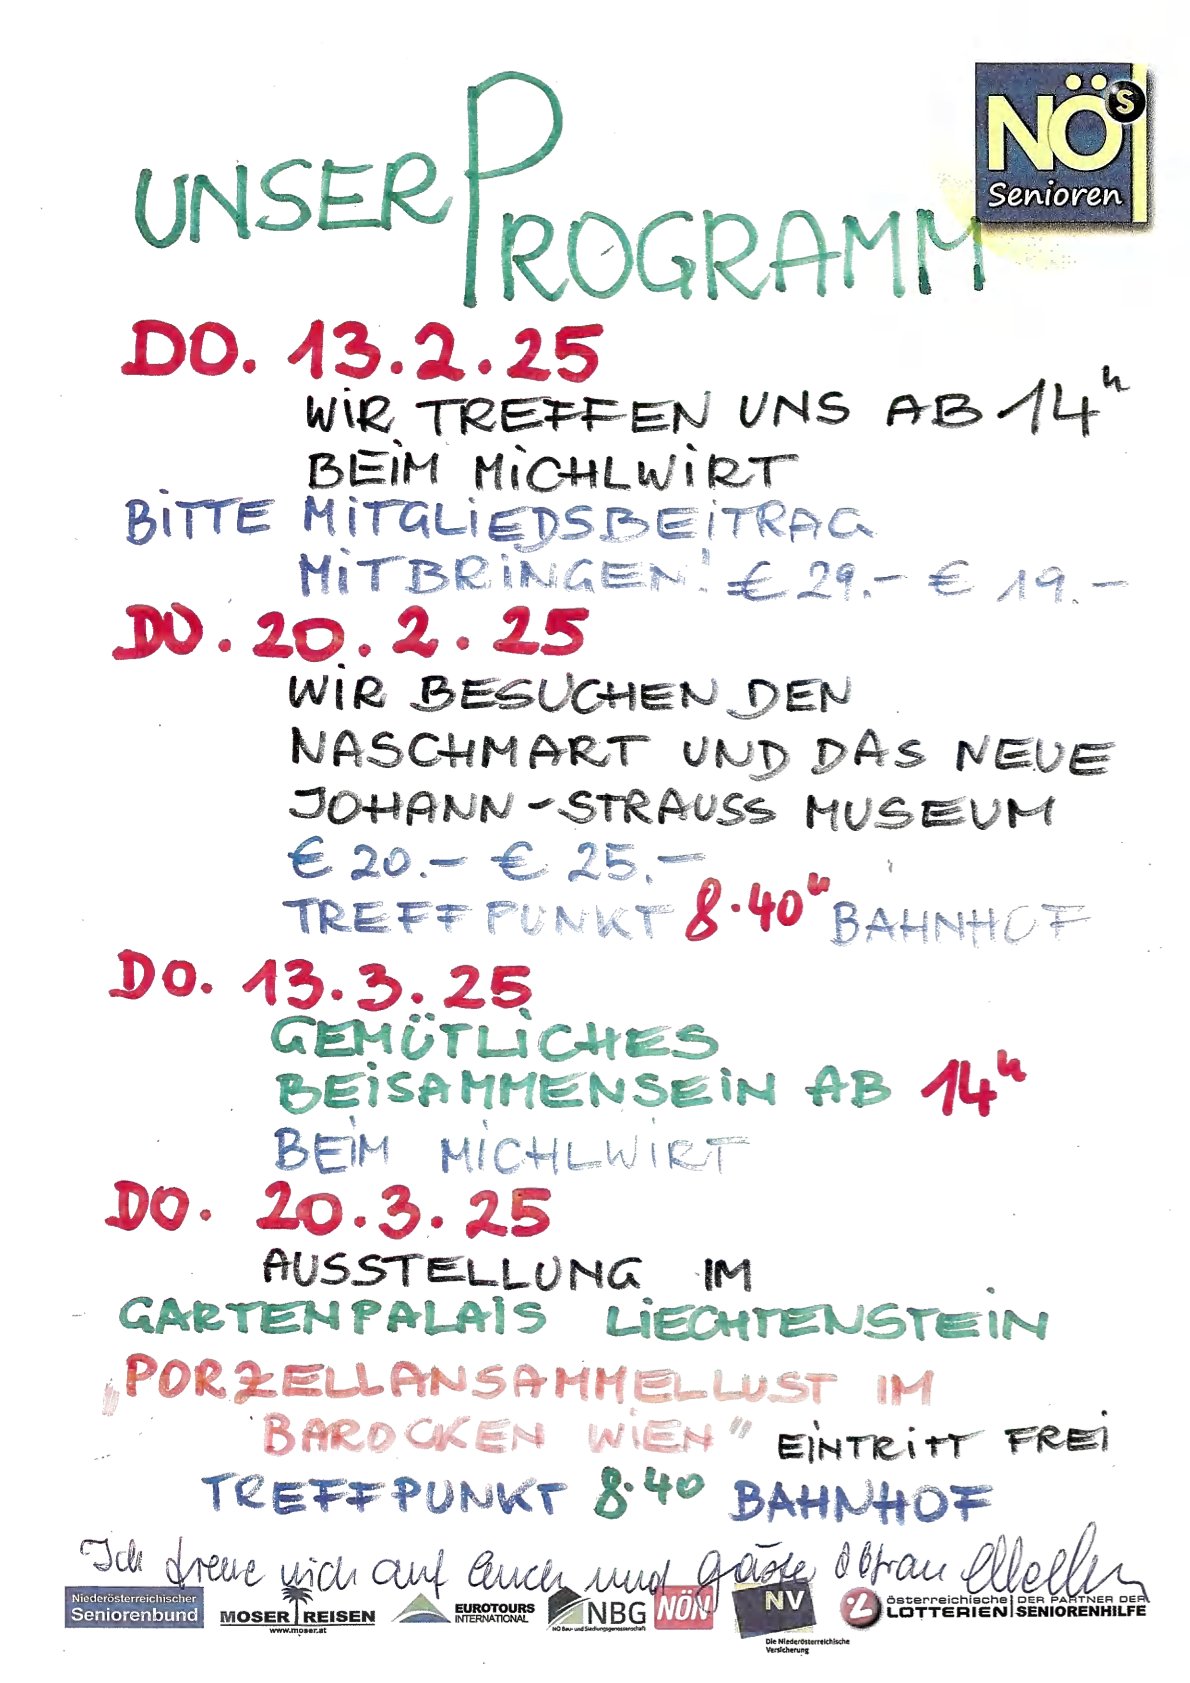 NÖs
Senioren
UNSER PROGRAMM
DO. 13.2.25
WiR TREFFEN UNS AB 14h
BEiM MiCHLWiRT
BiTTE MiTGLiEDSBEiTRAG
MiTBRiNGEN! € 29.- € 19.-
DO. 20.2.25
WiR BESUCHEN DEN
NASCHMART UND DAS NEUE
JOHANN-STRAUSS MUSEUM
€ 20.- € 25.-
TREFFPUNKT 8.40h BAHNHOF
DO. 13.3.25
GEMÜTLiCHES
BEiSAMMENSEiN AB 14h
BEiM MiCHLWiRT
DO. 20.3.25
AUSSTELLUNG IM
GARTENPALAiS LiECHTENSTEiN
„PORZELLANSAMMELLUST IM
BAROCKEN WiEN" EiNTRiTT FREi
TREFFPUNKT 8.40 BAHNHOF
Ich freue mich auf Euch und Gäste Obfrau
Niederösterreichischer
Seniorenbund
MOSER REISEN
www.moser.at
EUROTOURS
INTERNATIONAL
NBG
NÖ Bau- und Siedlungsgenossenschaft
NÖN
NV
Die Niederösterreichische
Versicherung
österreichische
LOTTERIEN
DER PARTNER DER
SENIORENHILFE